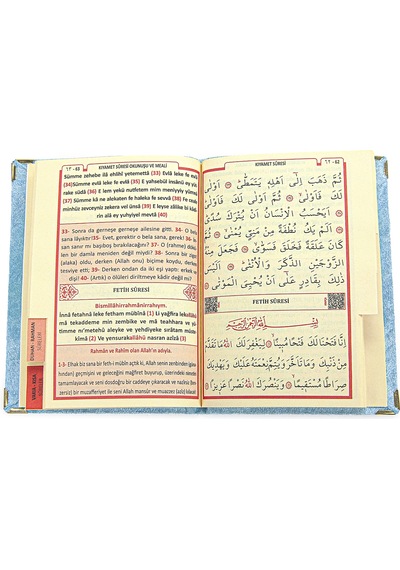 ٦٣ - 63
KIYAMET SÛRESİ OKUNUŞU VE MEALİ
Sümme zehebe ilâ ehlihî yetemettâ (33)
(34)Sümme evlâ leke fe evlâ (35) E yahsebül insânü ey yut
rake südâ (36) E lem yekü nutfetem mim meniyyiy yümnâ
(37) Sümme kâ ne alekaten fe haleka fe sevvâ (38) Fe ceale
minhüz zevceyniz zekera vel ünsâ (39) E leyse zâlike bi kâdi
rin alâ ey yuhyiyel mevtâ (40)
33- Sonra da gerneşe gerneşe ailesine gitti. 34- O bela
sana lâyıktır!35- Evet, gerektir o bela sana, gerek! 36- İn
san sanır mı başıboş bırakılacağını? 37- O (rahme) dökü
len bir damla meniden değil miydi? 38- Sonra bir aşılanmış
(alaka) oldu, derken (Allah onu) biçime koydu, derken
tesviye etti; 39- Derken ondan da iki eşi yaptı: erkek ve
dişi! 40- (Artık) o ölüleri diriltmeye kadir değil mi?
FETİH SÛRESİ
Bismillâhirrahmânirrahıym.
İnnâ fetahnâ leke fetham mübînâ (1) Li yağfira lekallâhü
mâ tekaddeme min zembike ve mâ teahhara ve yü
timme ni'metehû aleyke ve yehdiyeke sırâtam müste
kîmâ (2) Ve yensurakallâhü nasran azîzâ (3)
Rahmân ve Rahîm olan Allah'ın adıyla.
1-3- Elhak biz sana bir feth-i mübin açtık ki, Allah senin zenbinden
geçmişini ve geleceğini mağfiret buyurup, üzerindeki nimetini
tamamlayacak ve seni dosdoğru bir caddeye çıkaracak ve nazîsiz
bir muzafferiyet ile seni Allah mansûr ve muazzez (aziz) edecek
DUHAN - RAHMAN
SÛRELERİ
VAKIA - KIRA
SÛRELERİ
٦٢ - 62
KIYAMET SÛRESİ
ثُمَّ ذَهَبَ اِلٰٓى اَهْلِهٖ يَتَمَطّٰىۜ ۝ اَوْلٰى
لَكَ فَاَوْلٰىۙ ۝ ثُمَّ اَوْلٰى لَكَ فَاَوْلٰىۜ
۝ اَيَحْسَبُ الْاِنْسَانُ اَنْ يُتْرَكَ سُدًىۜ
۝ اَلَمْ يَكُ نُطْفَةً مِنْ مَنِيٍّ يُمْنٰىۙ ۝ ثُمَّ
كَانَ عَلَقَةً فَخَلَقَ فَسَوّٰىۙ ۝ فَجَعَلَ مِنْهُ
الزَّوْجَيْنِ الذَّكَرَ وَالْاُنْثٰىۜ ۝ اَلَيْسَ
ذٰلِكَ بِقَادِرٍ عَلٰٓى اَنْ يُحْيِيَ الْمَوْتٰى ۝
FETİH SÛRESİ
بِسْمِ اللّٰهِ الرَّحْمٰنِ الرَّحٖيمِ
اِنَّا فَتَحْنَا لَكَ فَتْحًا مُبٖينًاۙ ۝ لِيَغْفِرَ لَكَ اللّٰهُ مَا تَقَدَّمَ
مِنْ ذَنْبِكَ وَمَا تَاَخَّرَ وَيُتِمَّ نِعْمَتَهُ عَلَيْكَ وَيَهْدِيَكَ
صِرَاطًا مُسْتَقٖيمًاۙ ۝ وَيَنْصُرَكَ اللّٰهُ نَصْرًا عَزٖيزًا ۝